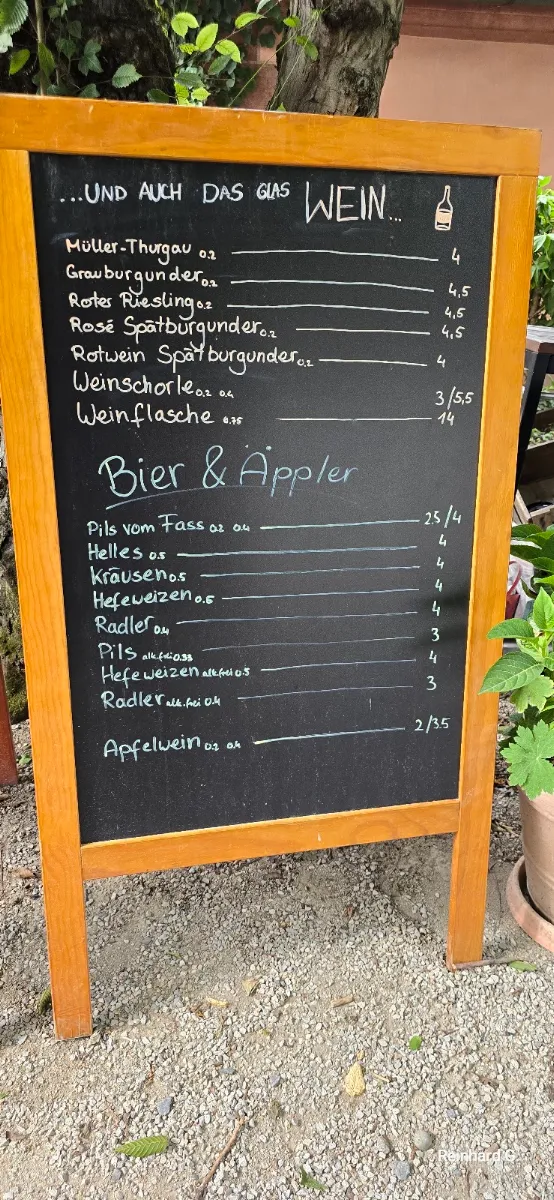 ...UND AUCH DAS GLAS WEIN...
Müller-Thurgau 0.2 4
Grauburgunder 0.2 4,5
Roter Riesling 0.2 4,5
Rosé Spätburgunder 0.2 4,5
Rotwein Spätburgunder 0.2 4
Weinschorle 0.2 0.4 3/5,5
Weinflasche 0.75 14
Bier & Äppler
Pils vom Fass 0.2 0.4 2.5/4
Helles 0.5 4
Kräusen 0.5 4
Hefeweizen 0.5 4
Radler 0.4 4
Pils alk.frei 0.33 3
Hefeweizen alk.frei 0.5 4
Radler alk.frei 0.4 3
Apfelwein 0.2 0.4 2/3.5
Reinhard G.